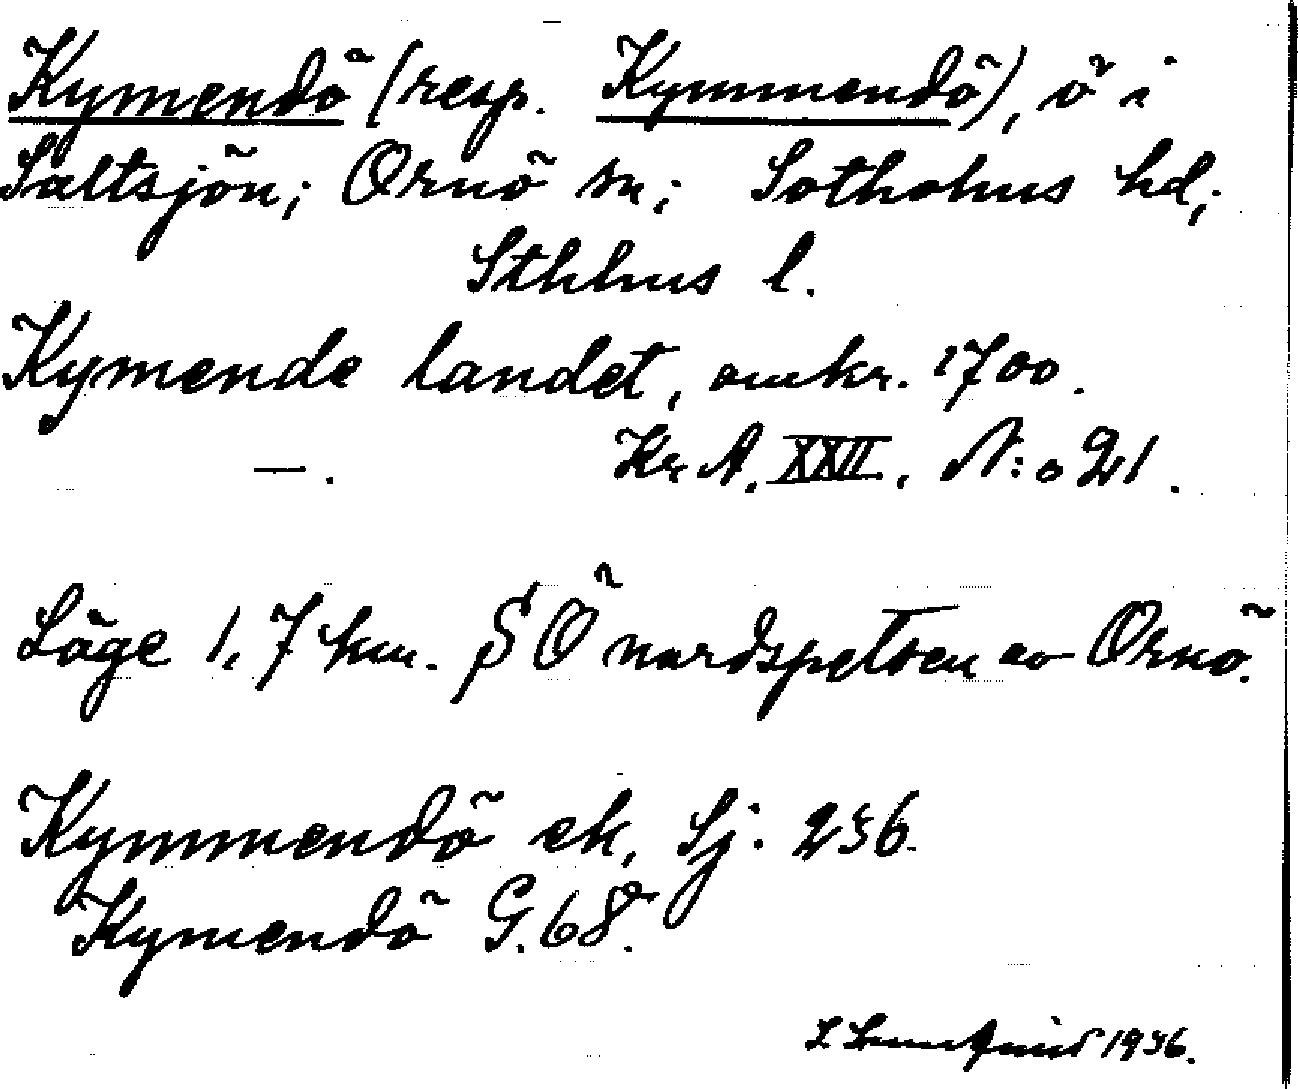 Kymendö (resp. Kymmendö), ö i
Saltsjön; Ornö sn; Sotholms hd;
Sthlms l.
Kymende landet, omkr. 1700.
—. Kr A. XXII. N:o 21.
Läge 1,7 km. SÖ nordspetsen av Ornö.
Kymmendö ek, Sj: 236.
Kymendö G. 68.
1936.